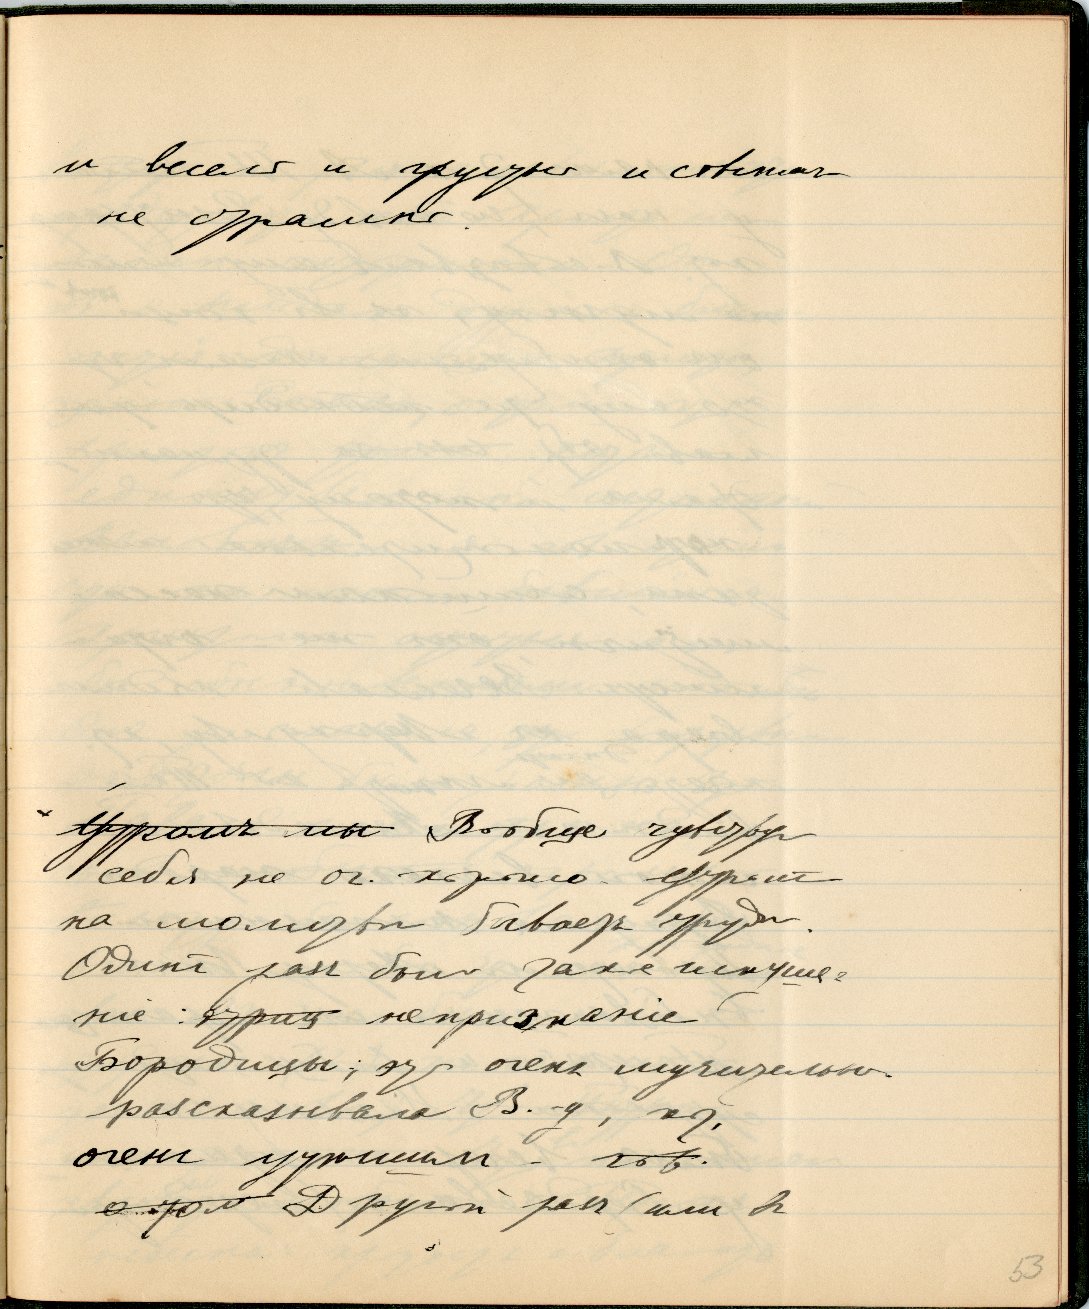 и весело и грустно и совсѣмъ
не страшно.
Утромъ мы Вообще чувствую
себя не оч. хорошо. Утромъ
на молитвѣ бываетъ трудно.
Одинъ разъ было такое искуше=
ніе: непризнаніе
Бородицы; это очень мучительно.
разсказывала В.
очень утѣшил
Другой разъ (или 2
53